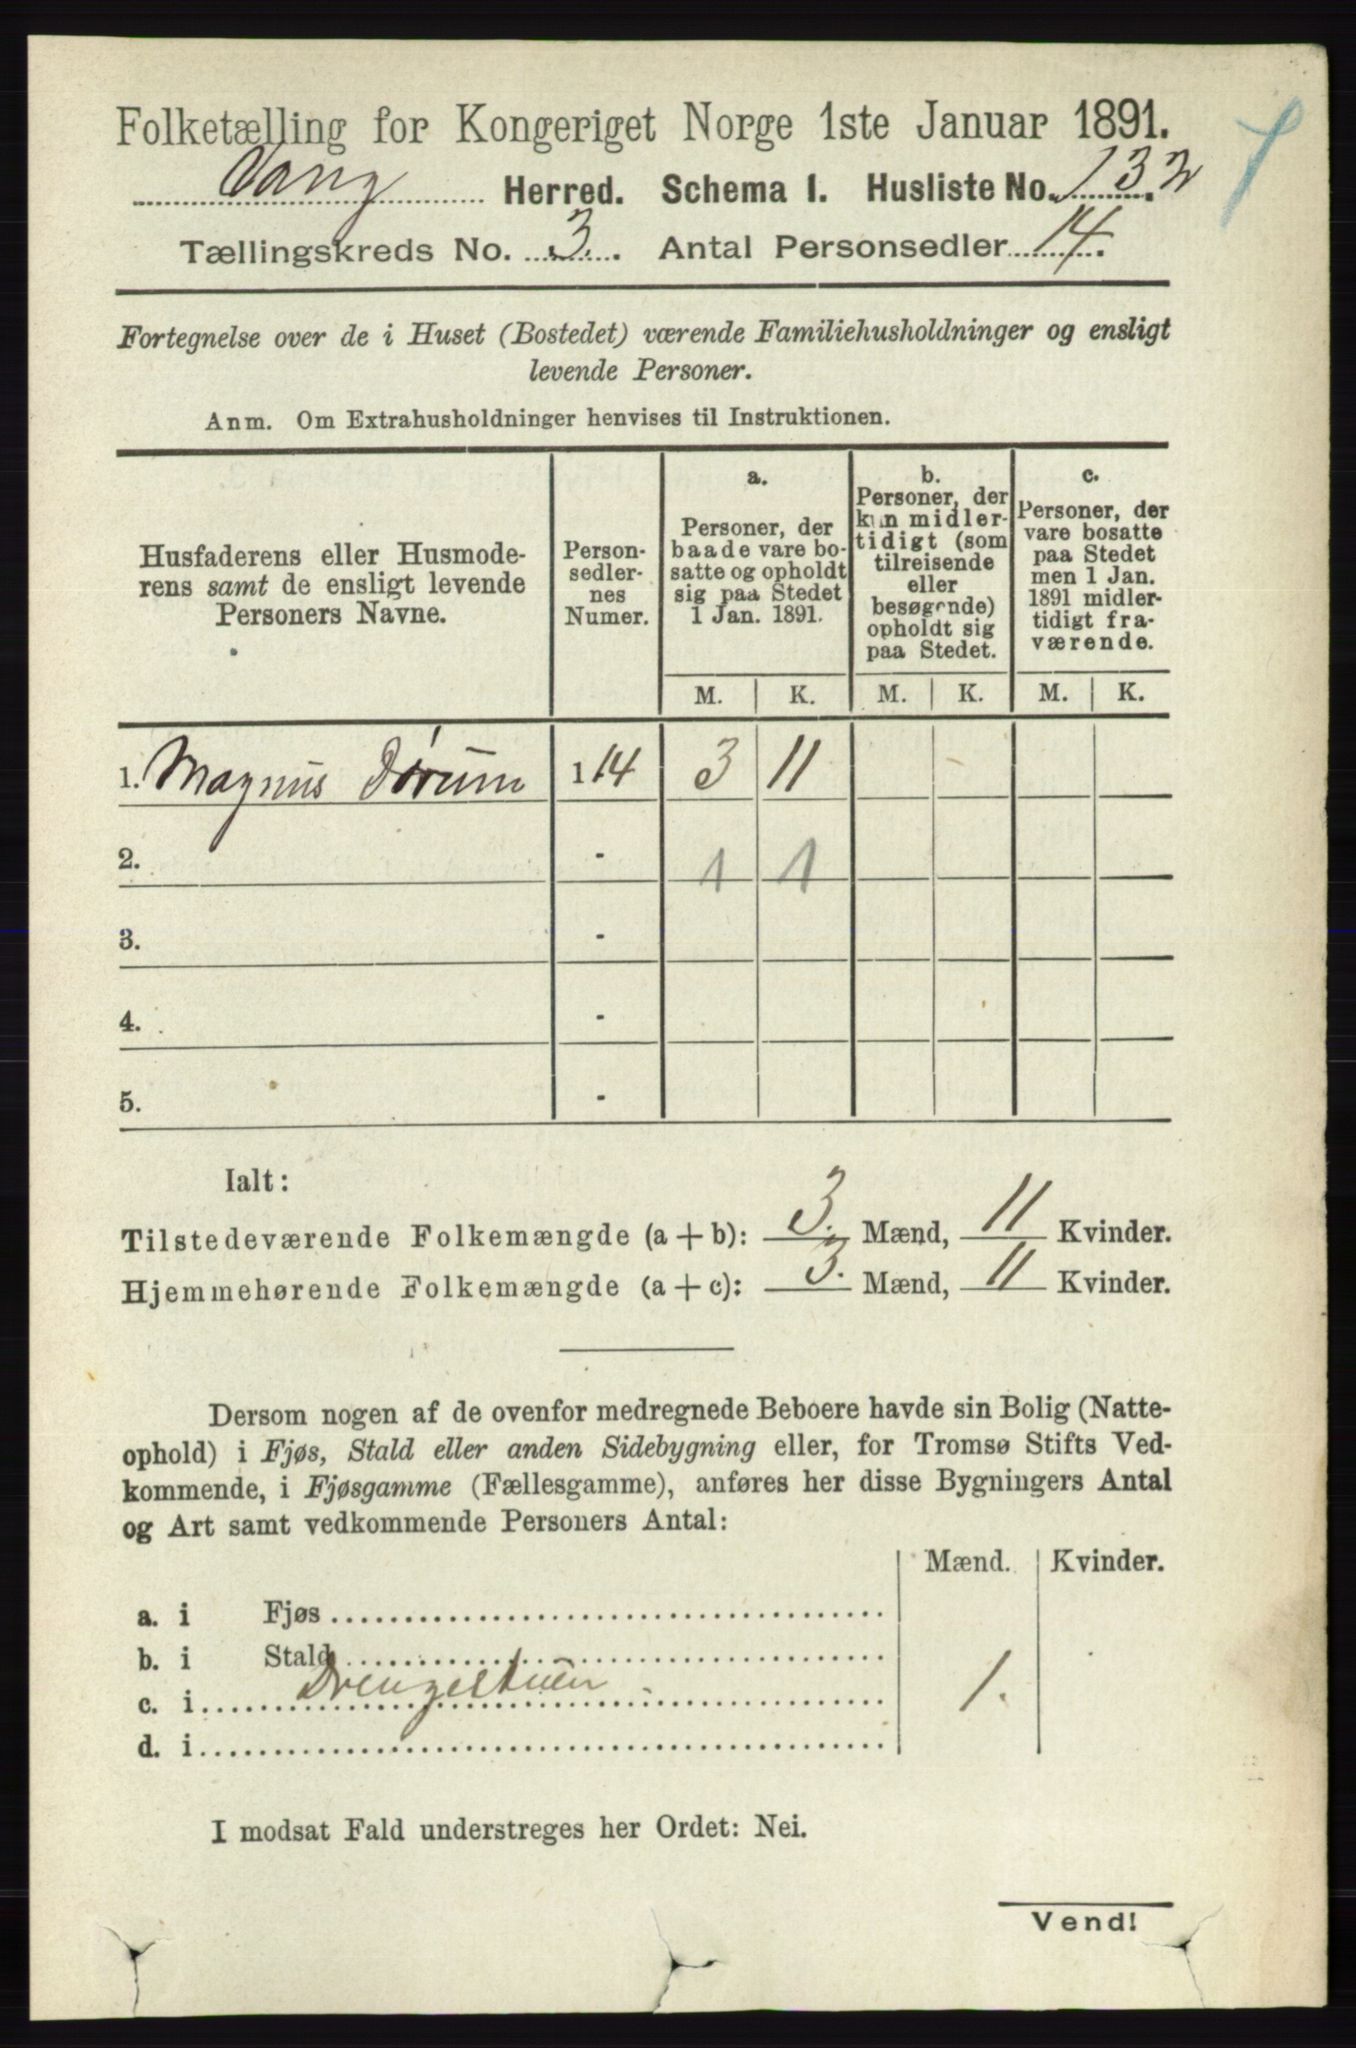 Folketælling for Kongeriget Norge 1ste Januar 1891.
Vang Herred. Schema I. Husliste No. 132.
Tællingskreds No. 3. Antal Personsedler 14.
Fortegnelse over de i Huset (Bostedet) værende Familiehusholdninger og ensligt
levende Personer.
Anm. Om Extrahusholdninger henvises til Instruktionen.
Husfaderens eller Husmode-
rens samt de ensligt levende
Personers Navne.
Person-
sedler-
nes
Numer.
a.
Personer, der
baade vare bo-
satte og opholdt
sig paa Stedet
1 Jan. 1891.
b.
Personer, der
kun midler-
tidigt (som
tilreisende
eller
besøgende)
opholdt sig
paa Stedet.
c.
Personer, der
vare bosatte
paa Stedet
men 1 Jan.
1891 midler-
tidigt fra-
værende.
M. K. M. K. M. K.
1. Magnus Dørum 1 14 3 11
2. - 1 1
3. -
4. -
5. -
Ialt:
Tilstedeværende Folkemængde (a + b): 3. Mænd, 11 Kvinder.
Hjemmehørende Folkemængde (a + c): 3. Mænd, 11 Kvinder.
Dersom nogen af de ovenfor medregnede Beboere havde sin Bolig (Natte-
ophold) i Fjøs, Stald eller anden Sidebygning eller, for Tromsø Stifts Ved-
kommende, i Fjøsgamme (Fællesgamme), anføres her disse Bygningers Antal
og Art samt vedkommende Personers Antal:
Mænd. Kvinder.
a. i Fjøs
b. i Stald
c. i Drengestuen 1.
d. i
I modsat Fald understreges her Ordet: Nei.
Vend!